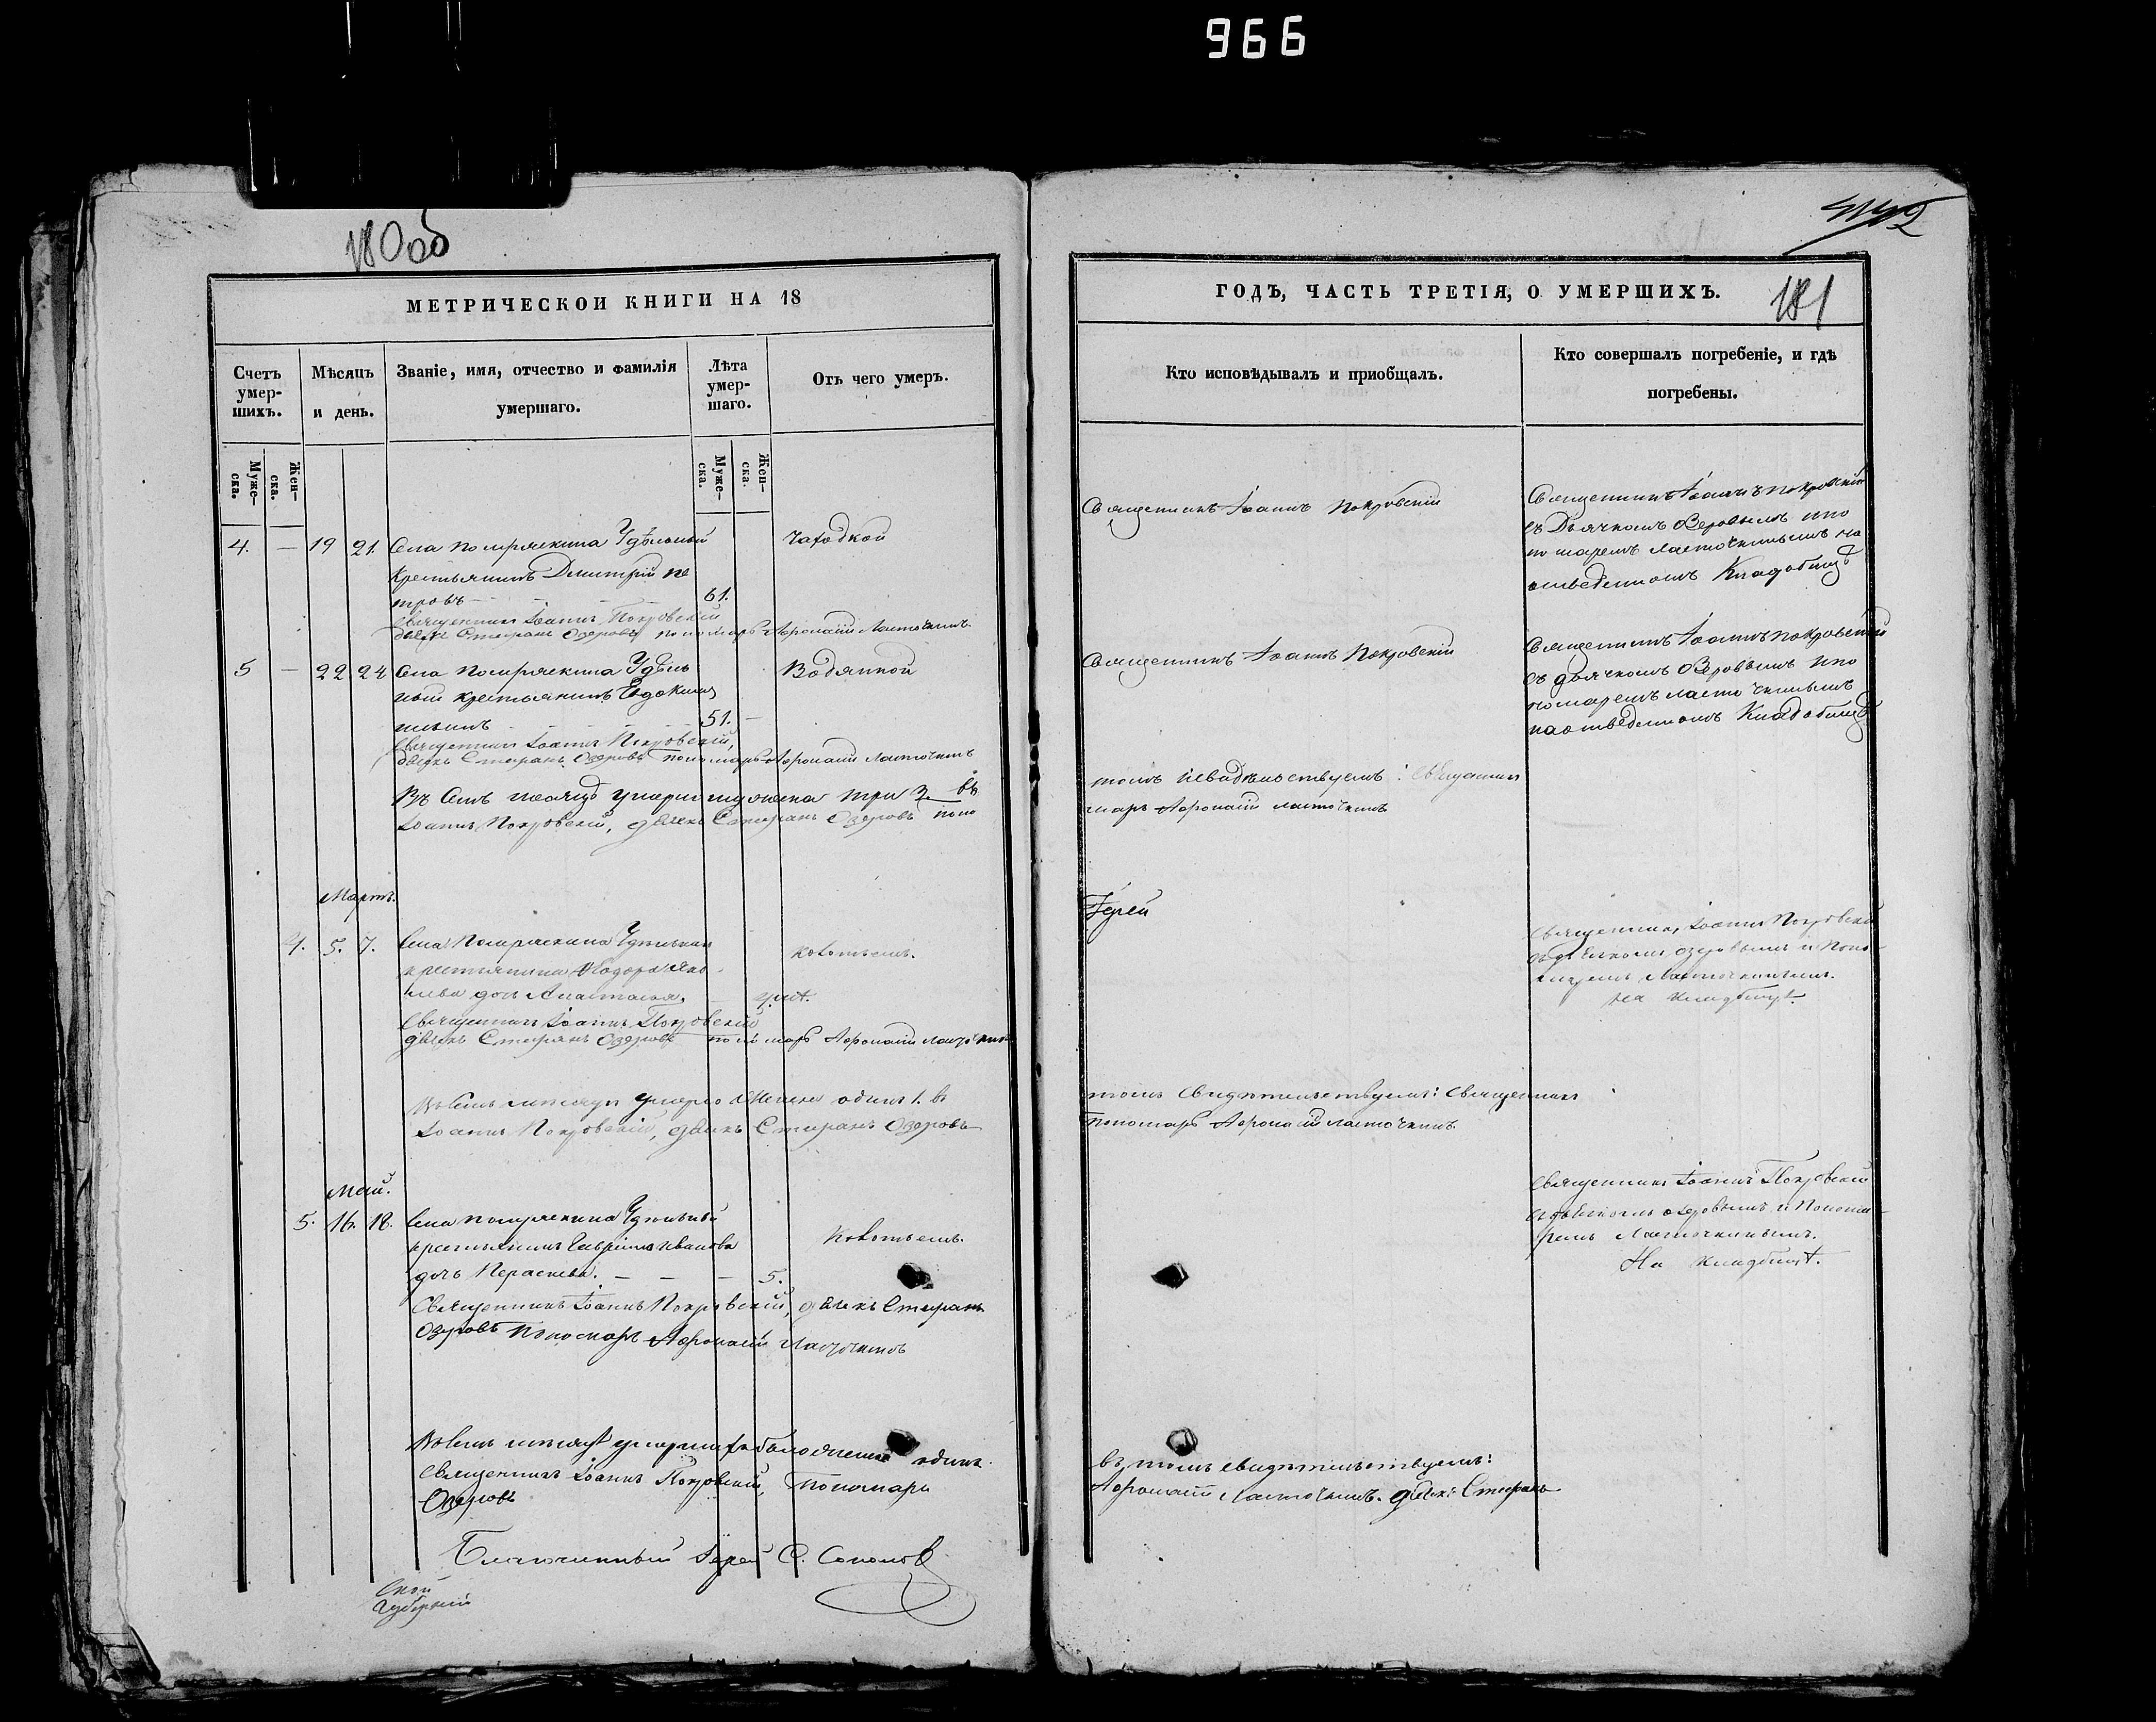 966
180об
МЕТРИЧЕСКОИ КНИГИ НА 18
Счетъ умер-шихъ.
Мѣсяцъ и день.
Званіе, имя, отчество и фамилія умершаго.
Лѣта умер-шаго.
Отъ чего умеръ.
Муже-ска.
Жен-ска.
Муже-ска.
Жен-ска.
4. — 19 21. Села Удѣльный Чахоткой
Крестьянинъ Дмитрій Пе
тровъ — — — 61.
Священникъ Іоаннъ Покровскій
дьячкъ Стефанъ Озеровъ пономарь Афонасій Ласточкинъ
5 — 22 24 Села Удѣль Водянкой
ной крестьянинъ Евдокимъ
51. —
Священникъ Іоаннъ Покровскій,
дьячкъ Стефанъ Озеровъ пономарь Афонасій Ласточкинъ
Въ семъ месяцѣ умерло мужеска три 3. въ
Іоаннъ Покровскій, дьячкъ Стефанъ Озеровъ поно
Мартъ.
4. 5. 7. Села Удѣльнаго Кокотьемъ.
крестьянина Ѳеодора Яко
влева дочь Анастасія,
Священникъ Іоаннъ Покровскій
дьячкъ Стефанъ Озеровъ пономарь Афонасій Ласточкинъ
Въ семъ месяцѣ умерло женска одна 1. въ
Іоаннъ Покровскій, дьячкъ Стефанъ Озеровъ
Май.
5. 16. 18. Села Удѣльный
крестьянинъ Гавріила Иванова Кокотьемъ.
дочь Параскева. — — — 5.
Священникъ Іоаннъ Покровскій, дьячкъ Стефанъ
Озеровъ Пономарь Афонасій Ласточкинъ
Въ семъ месяцѣ умерло женска одна.
Священникъ Іоаннъ Покровскій, Пономарь
Озеровъ
Благочинный Іерей С. Соколовъ
ской
Губерніи
181
ГОДЪ, ЧАСТЬ ТРЕТІЯ, О УМЕРШИХЪ.
Кто исповѣдывалъ и приобщалъ.
Кто совершалъ погребеніе, и гдѣ
погребены.
Священникъ Іоаннъ Покровскій
Священникъ Іоаннъ Покровскій
съ Дьячкомъ Озеровымъ и по
номаремъ Ласточкинымъ на
отведенномъ Кладбищѣ
Священникъ Іоаннъ Покровскій
Священникъ Іоаннъ Покровскій
съ дьячкомъ Озеровымъ и по
номаремъ Ласточкинымъ
на отведенномъ Кладбищѣ
томъ свидѣтельствуемъ: Священникъ
марь Афонасій Ласточкинъ
Іерей
Священникъ, Іоаннъ Покровскій
съ дьячкомъ Озеровымъ и Поно-
маремъ Ласточкинымъ.
На кладбищѣ.
томъ свидѣтельствуемъ: Священникъ
Пономарь Афонасій Ласточкинъ.
Священникъ Іоаннъ Покровскій
съ дьячкомъ Озеровымъ и Понома-
ремъ Ласточкинымъ.
На кладбищѣ.
въ томъ свидѣтельствуемъ:
Афонасій Ласточкинъ. дьячкъ Стефанъ